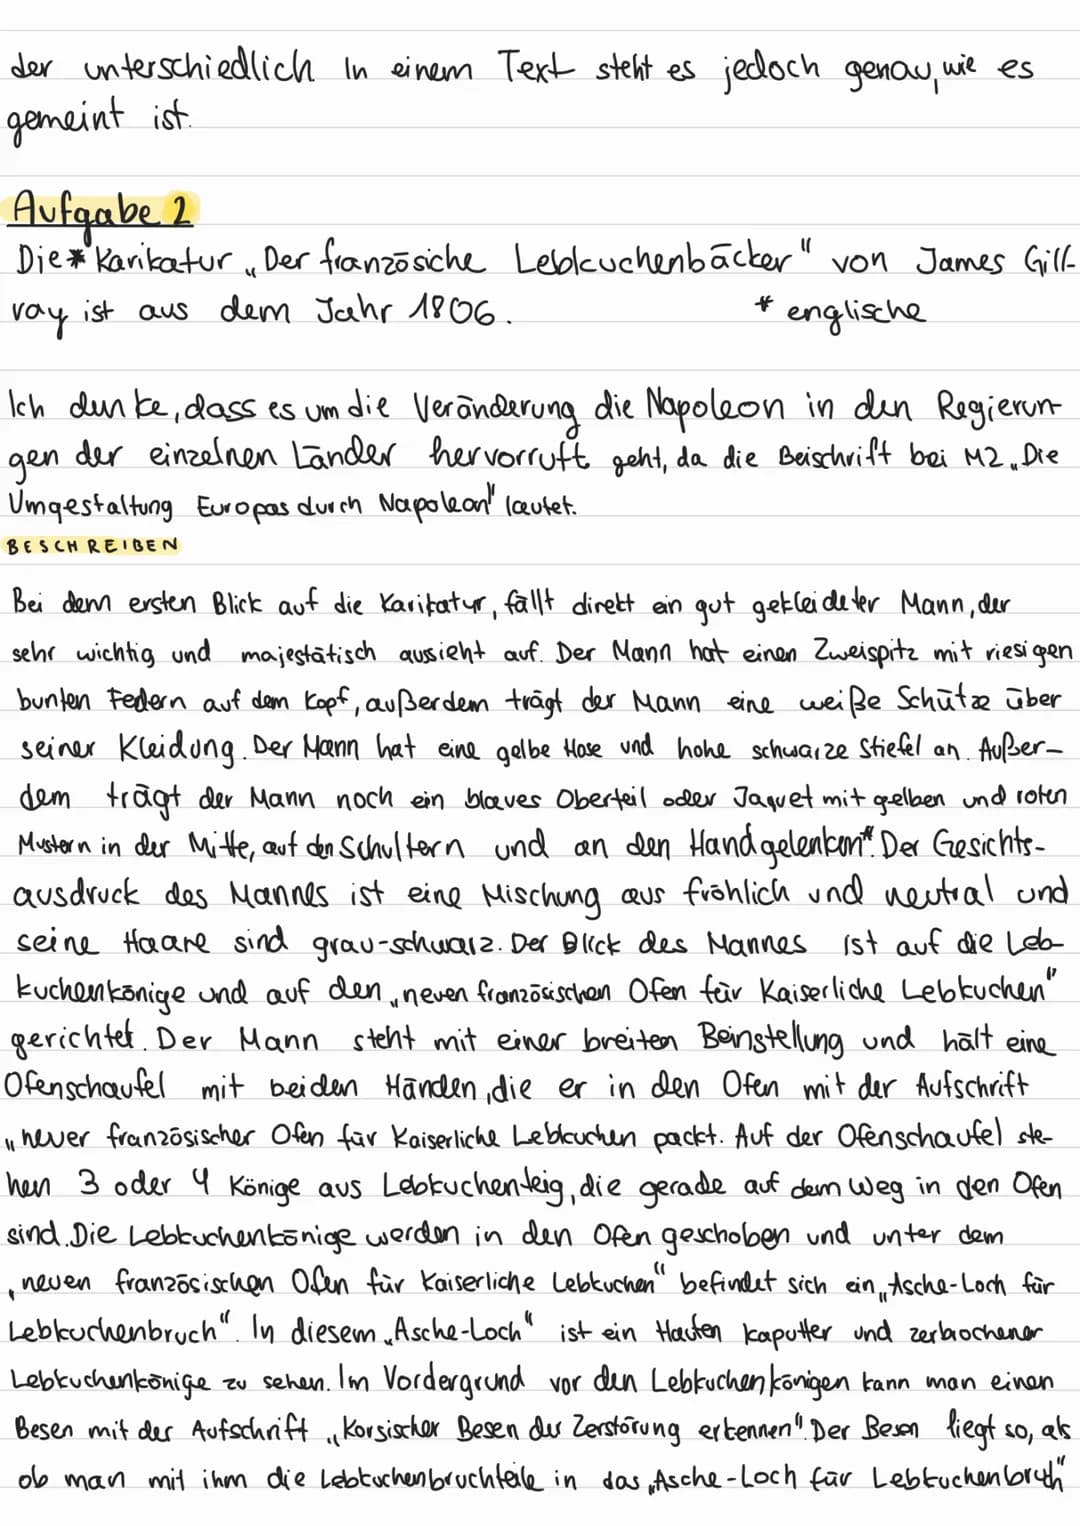 der unterschiedlich In einem Text steht es jedoch genau, wie es
gemeint ist.
Aufgabe 2
Die* Karikatur „Der französiche Lebkuchenbäcker" von James Gill-
ray ist aus dem Jahr 1806. * englische
Ich denke, dass es um die Veränderung die Napoleon in den Regierun-
gen der einzelnen Länder hervorruft geht, da die Beischrift bei M2 „Die
Umgestaltung Europas durch Napoleon" lautet.
BESCHREIBEN
Bei dem ersten Blick auf die Karikatur, fällt direkt ein gut gekleideter Mann, der
sehr wichtig und majestätisch aussieht auf. Der Mann hat einen Zweispitz mit riesigen
bunten Federn auf dem Kopf, außerdem trägt der Mann eine weiße Schütze über
seiner Kleidung. Der Mann hat eine gelbe Hose und hohe schwarze Stiefel an. Außer-
dem trägt der Mann noch ein blaues Oberteil oder Jaquet mit gelben und roten
Mustern in der Mitte, auf den Schultern und an den Handgelenken*. Der Gesichts-
ausdruck des Mannes ist eine Mischung aus fröhlich und neutral und
seine Haare sind grau-schwarz. Der Blick des Mannes ist auf die Leb-
kuchenkönige und auf den „neuen französischen Ofen für Kaiserliche Lebkuchen"
gerichtet. Der Mann steht mit einer breiten Beinstellung und hält eine
Ofenschaufel mit beiden Händen, die er in den Ofen mit der Aufschrift
„neuer französischer Ofen für Kaiserliche Lebkuchen packt. Auf der Ofenschaufel ste-
hen 3 oder 4 Könige aus Lebkuchenteig, die gerade auf dem Weg in den Ofen
sind. Die Lebkuchenkönige werden in den Ofen geschoben und unter dem
„neuen französischen Ofen für Kaiserliche Lebkuchen" befindet sich ein „Asche-Loch für
Lebkuchenbruch". In diesem „Asche-Loch" ist ein Haufen kaputter und zerbrochener
Lebkuchenkönige zu sehen. Im Vordergrund vor den Lebkuchenkönigen kann man einen
Besen mit der Aufschrift „Korsischer Besen der Zerstörung erkennen". Der Besen liegt so, als
ob man mit ihm die Lebkuchenbruchteile in das „Asche-Loch für Lebkuchenbruch"